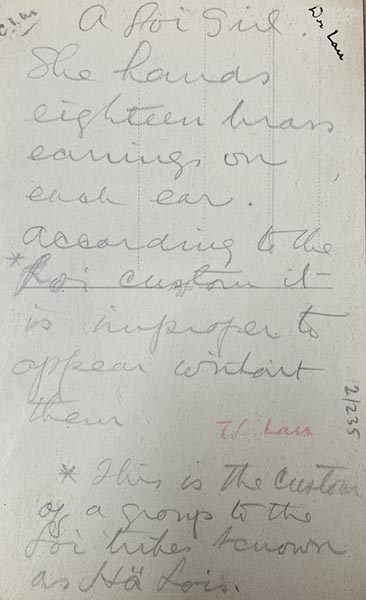 C.I.M
Dr Lau
A Loi Girl.
She hands
eighteen brass
earrings on
each ear.
according to the
* Loi custom it
is improper to
appear without
them
2/235
T.C. Lau
* This is the custom
of a group to the
Loi tribes known
as Hä Lois.